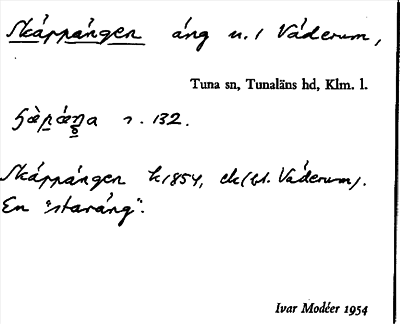 Skäppängen äng u. / Väderum,
Tuna sn, Tunaläns hd, Klm. l.
s. 132.
Skäppängen k 1854, ek (bl. Väderum).
En "staräng".
Ivar Modéer 1954